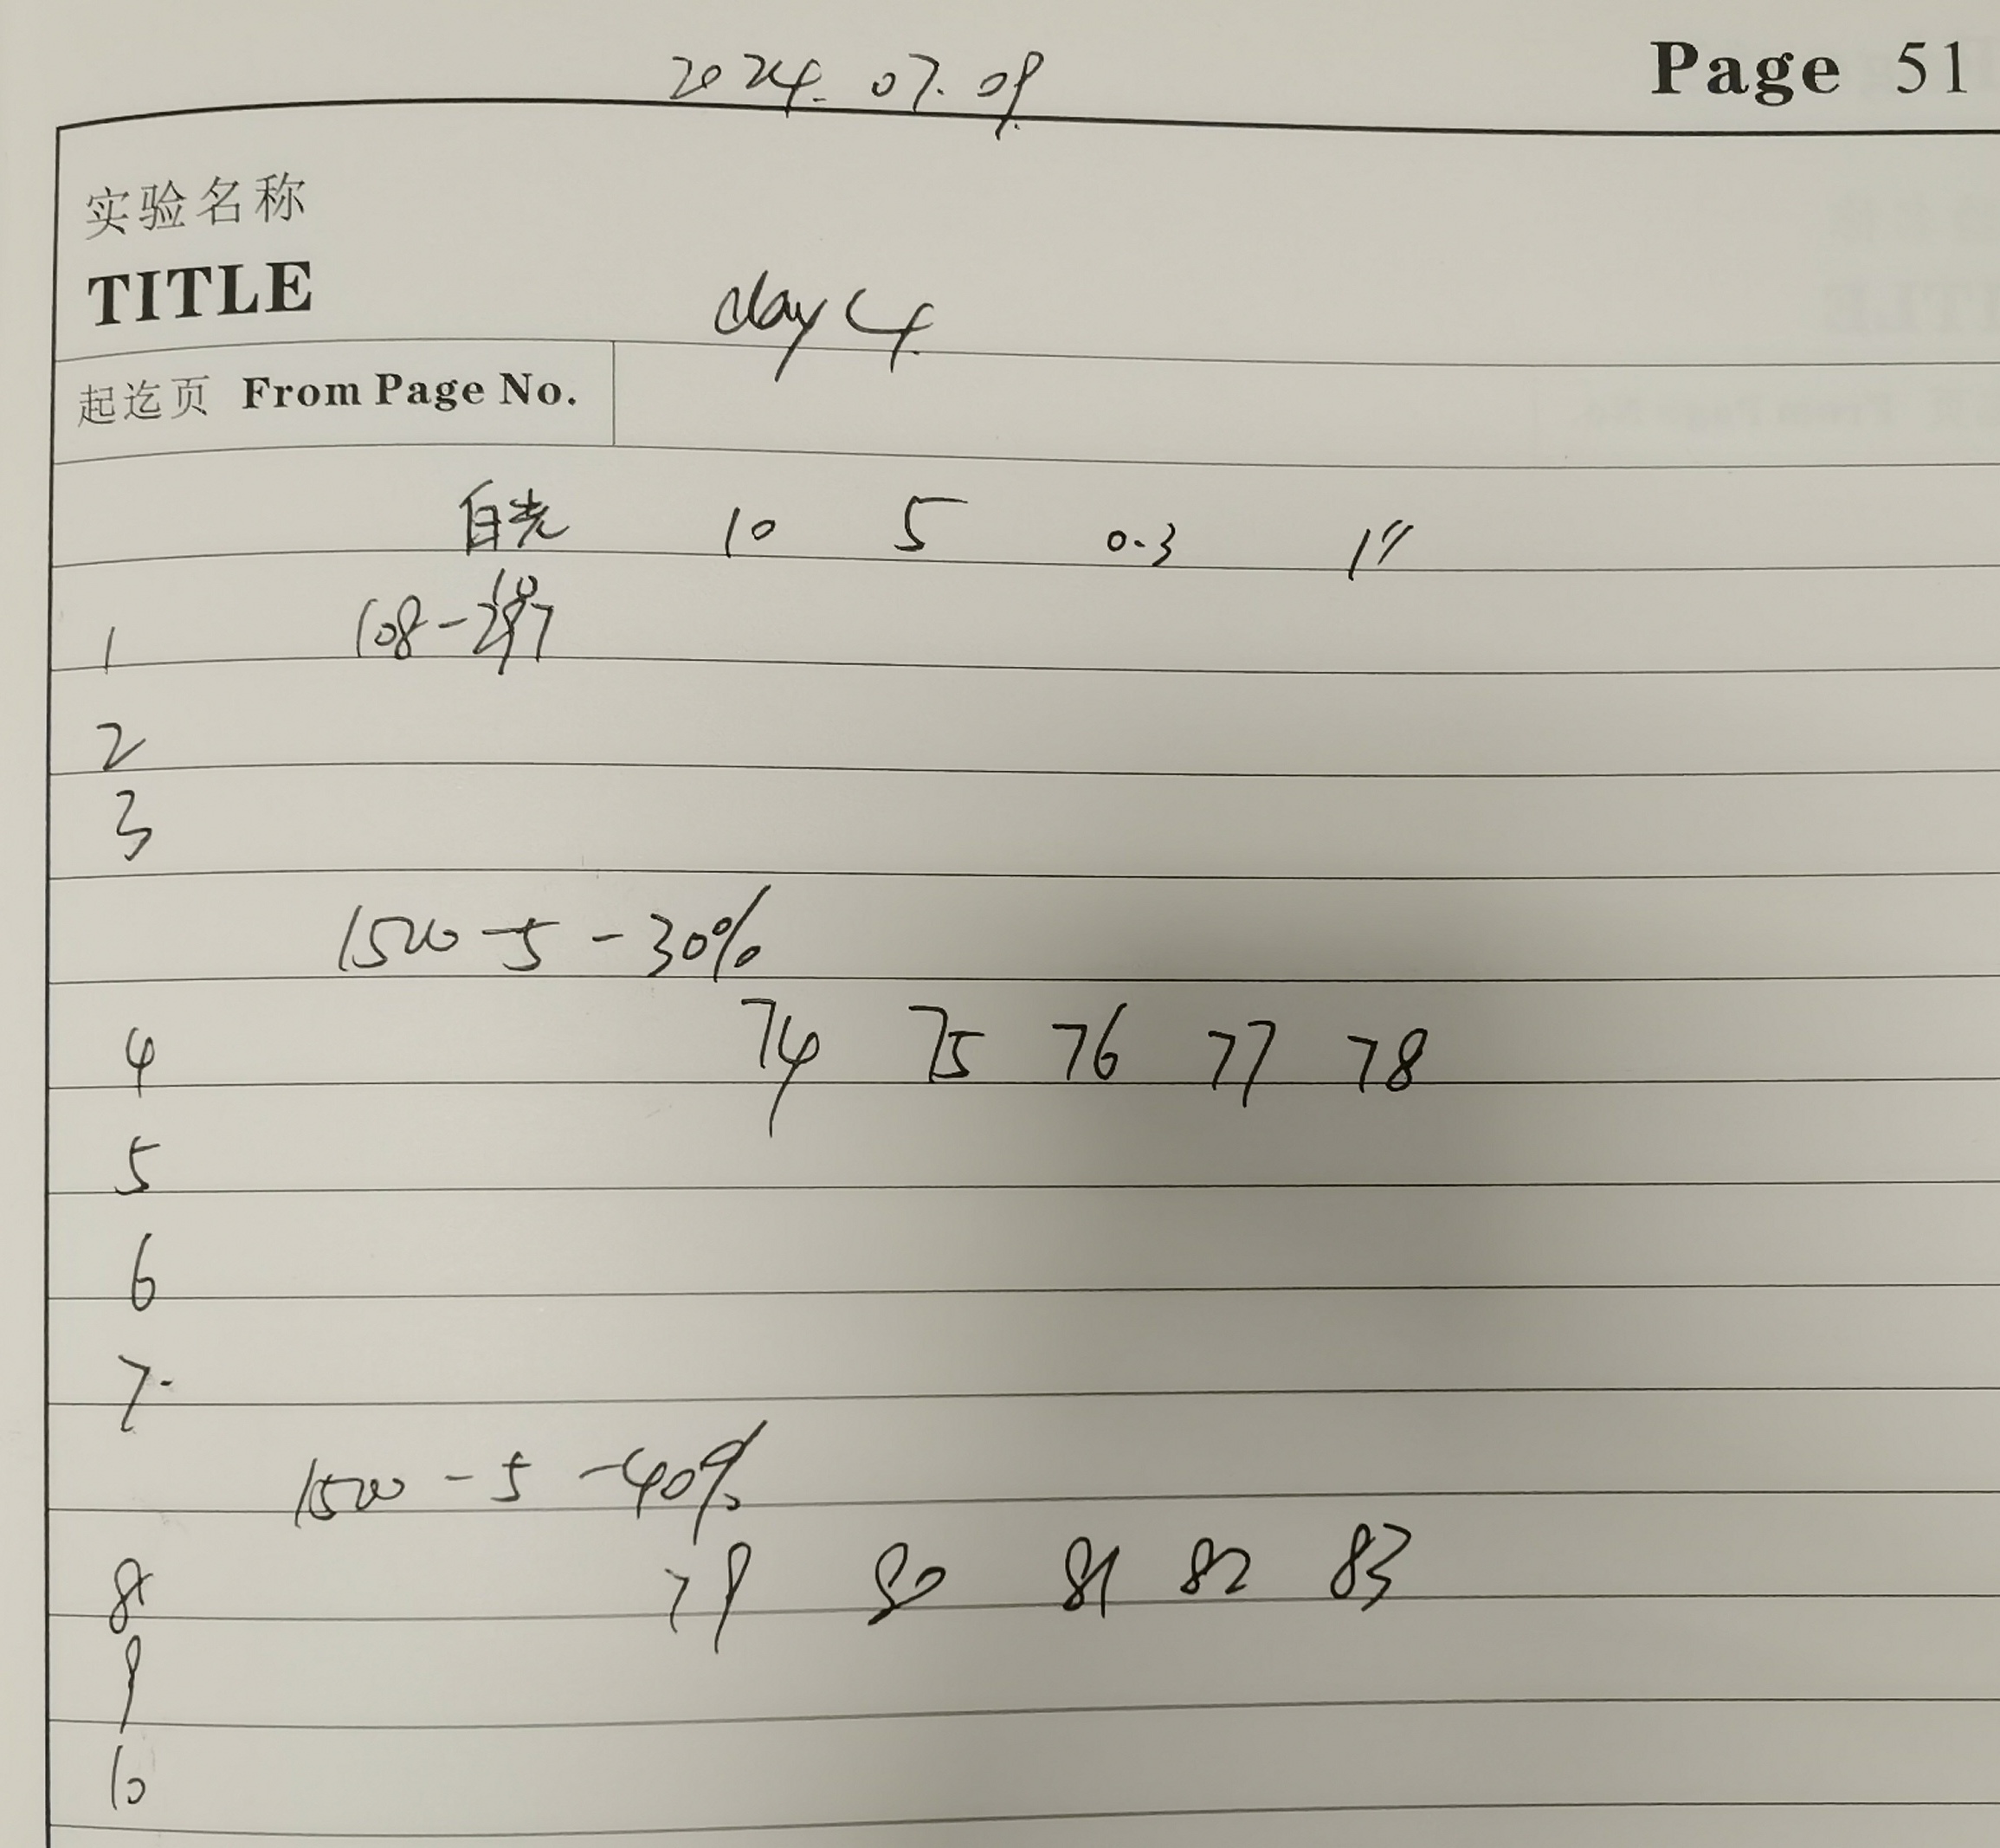 2024.07.09
Page 51
实验名称
TITLE
day 4
起迄页 From Page No.
白光 10 5 0.3 1"
1 108-
2
3
1500-5-30%
4 74 75 76 77 78
5
6
7.
1500-5-40%
8 79 80 81 82 83
9
10